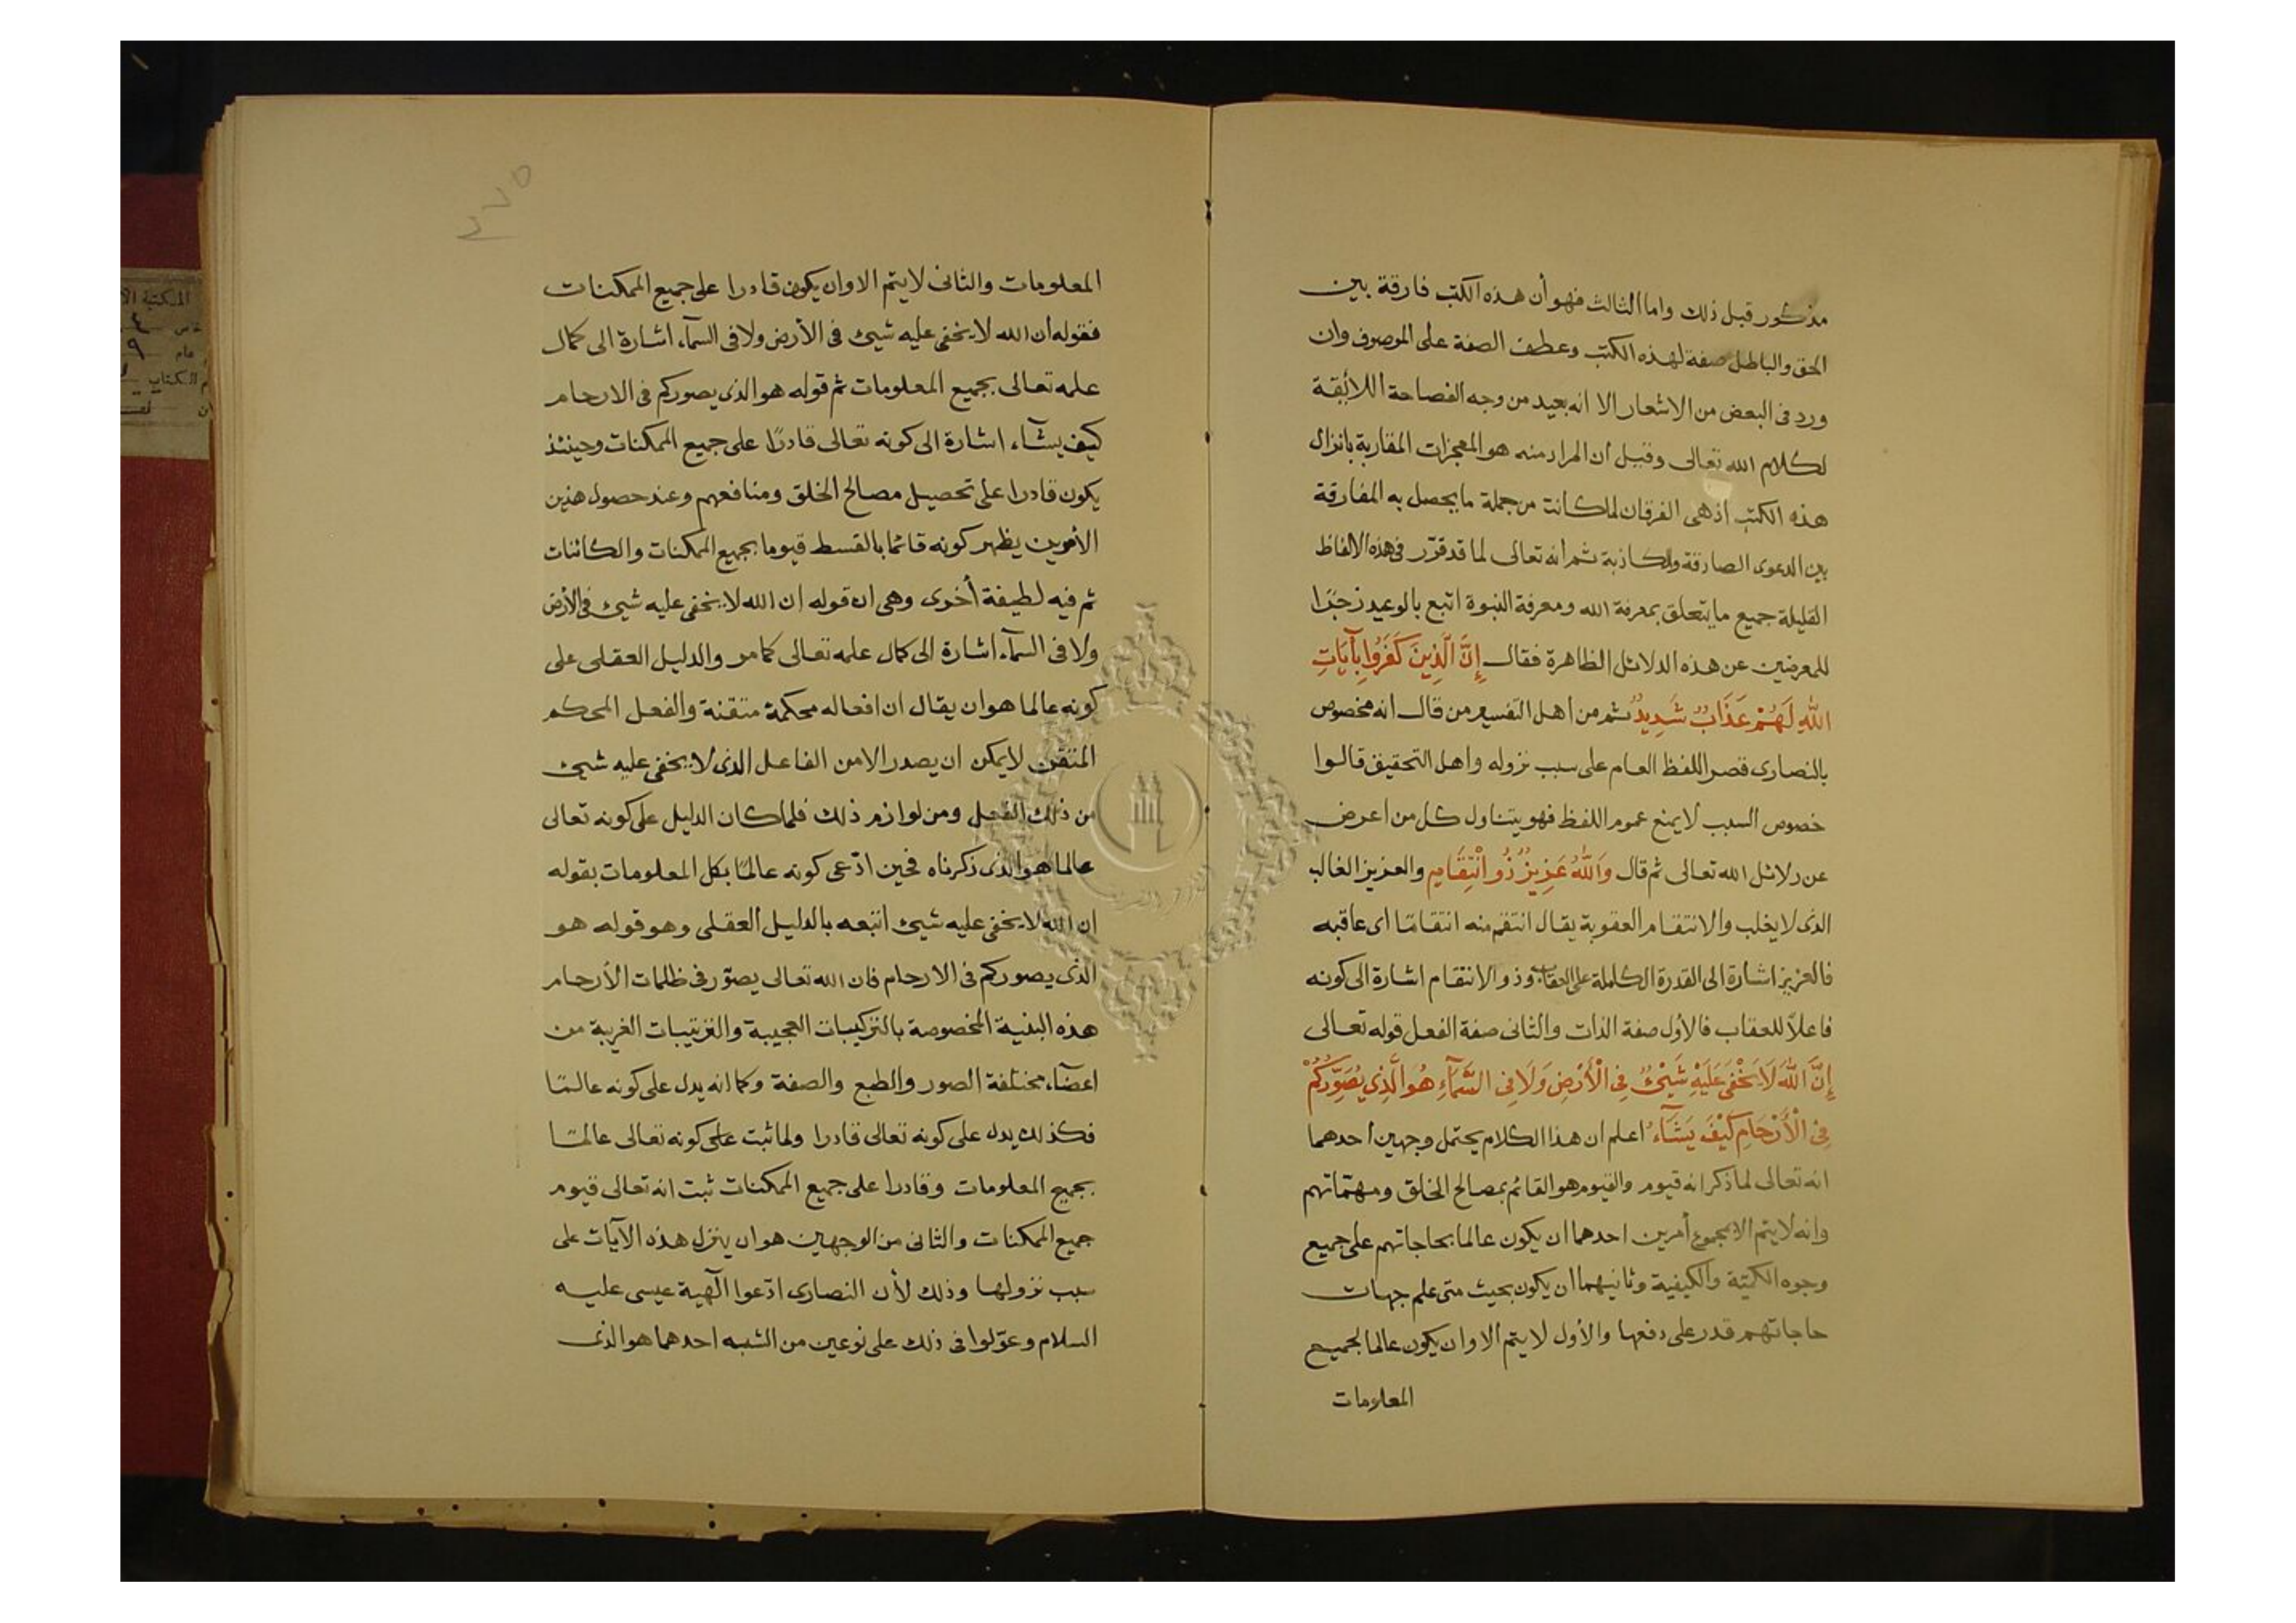 مذكور قبل ذلك واما الثالث فهو أن هذه الكتب فارقة بين
الحق والباطل صفة لهذه الكتب وعطف الصفة على الموصوف وان
ورد فى البعض من الاشعار الا انه بعيد من وجه الفصاحة اللائقة
لكلام الله تعالى وقيل ان المراد منه هو المعجزات المقاربة بانزال
هذه الكتب اذ هى الفرقان لما كانت من جملة ما يحصل به المفارقة
بين الدعوى الصادقة والكاذبة ثم انه تعالى لما قد قرّر فى هذه الالفاظ
القليلة جميع ما يتعلق بمعرفة الله ومعرفة النبوة اتبع بالوعيد زجرًا
للمعرضين عن هذه الدلائل الظاهرة فقال إِنَّ الَّذِينَ كَفَرُوا بِآيَاتِ
اللَّهِ لَهُمْ عَذَابٌ شَدِيدٌ ثم من اهل التفسير من قال انه مخصوص
بالنصارى قصر اللفظ العام على سبب نزوله واهل التحقيق قالوا
خصوص السبب لا يمنع عموم اللفظ فهو يتناول كل من اعرض
عن دلائل الله تعالى ثم قال وَاللَّهُ عَزِيزٌ ذُو انْتِقَامٍ والعزيز الغالب
الذى لا يغلب والانتقام العقوبة يقال انتقم منه انتقامًا اى عاقبه
فالعزيز اشارة الى القدرة الكاملة على العقاب وذو الانتقام اشارة الى كونه
فاعلاً للعقاب فالاول صفة الذات والثانى صفة الفعل قوله تعالى
إِنَّ اللَّهَ لَا يَخْفَى عَلَيْهِ شَيْئٌ فِى الْأَرْضِ وَلَا فِى السَّمَآءِ هُوَ الَّذِى يُصَوِّرُكُمْ
فِى الْأَرْحَامِ كَيْفَ يَشَآءُ اعلم ان هذا الكلام يحتمل وجهين احدهما
انه تعالى لما ذكر انه قيوم والقيوم هو القائم بمصالح الخلق ومهمّاتهم
وانه لا يتم الا بمجموع أمرين احدهما ان يكون عالما بحاجاتهم على جميع
وجوه الكميّة والكيفية وثانيهما ان يكون بحيث متى علم جهات
حاجاتهم قدر على دفعها والأول لا يتم الا وان يكون عالما لجميع
المعلومات
٣٧٥
المعلومات والثانى لا يتم الا وان يكون قادرا على جميع الممكنات
فقوله ان الله لا يخفى عليه شيئ فى الأرض ولا فى السمآء اشارة الى كمال
علمه تعالى بجميع المعلومات ثم قوله هو الذى يصوركم فى الارحام
كيف يشآء اشارة الى كونه تعالى قادرًا على جميع الممكنات وحينئذ
يكون قادرا على تحصيل مصالح الخلق ومنافعهم وعند حصول هذين
الأمرين يظهر كونه قائما بالقسط قيوما بجميع الممكنات والكائنات
ثم فيه لطيفة أخرى وهى ان قوله ان الله لا يخفى عليه شيئ فى الأرض
ولا فى السمآء اشارة الى كمال علمه تعالى كما مر والدليل العقلى على
كونه عالما هو ان يقال ان افعاله محكمة متقنة والفعل المحكم
المتقن لا يمكن ان يصدر الا من الفاعل الذى لا يخفى عليه شيئ
من ذلك الفعل ومن لوازم ذلك فلما كان الدليل على كونه تعالى
عالما هو الذى ذكرناه فحين ادّعى كونه عالمًا بكل المعلومات بقوله
ان الله لا يخفى عليه شيئ اتبعه بالدليل العقلى وهو قوله هو
الذى يصوركم فى الارحام فان الله تعالى يصوّر فى ظلمات الأرحام
هذه البنية المخصوصة بالتركيبات العجيبة والترتيبات الغريبة من
اعضآء مختلفة الصور والطبع والصفة وكما انه يدل على كونه عالمًا
فكذلك يدل على كونه تعالى قادرا ولما ثبت على كونه تعالى عالمًا
بجميع المعلومات وقادرا على جميع الممكنات ثبت انه تعالى قيوم
جميع الممكنات والثانى من الوجهين هو ان ينزل هذه الآيات على
سبب نزولها وذلك لأن النصارى ادّعوا آلهية عيسى عليه
السلام وعوّلوا فى ذلك على نوعين من الشبه احدهما هو الذى